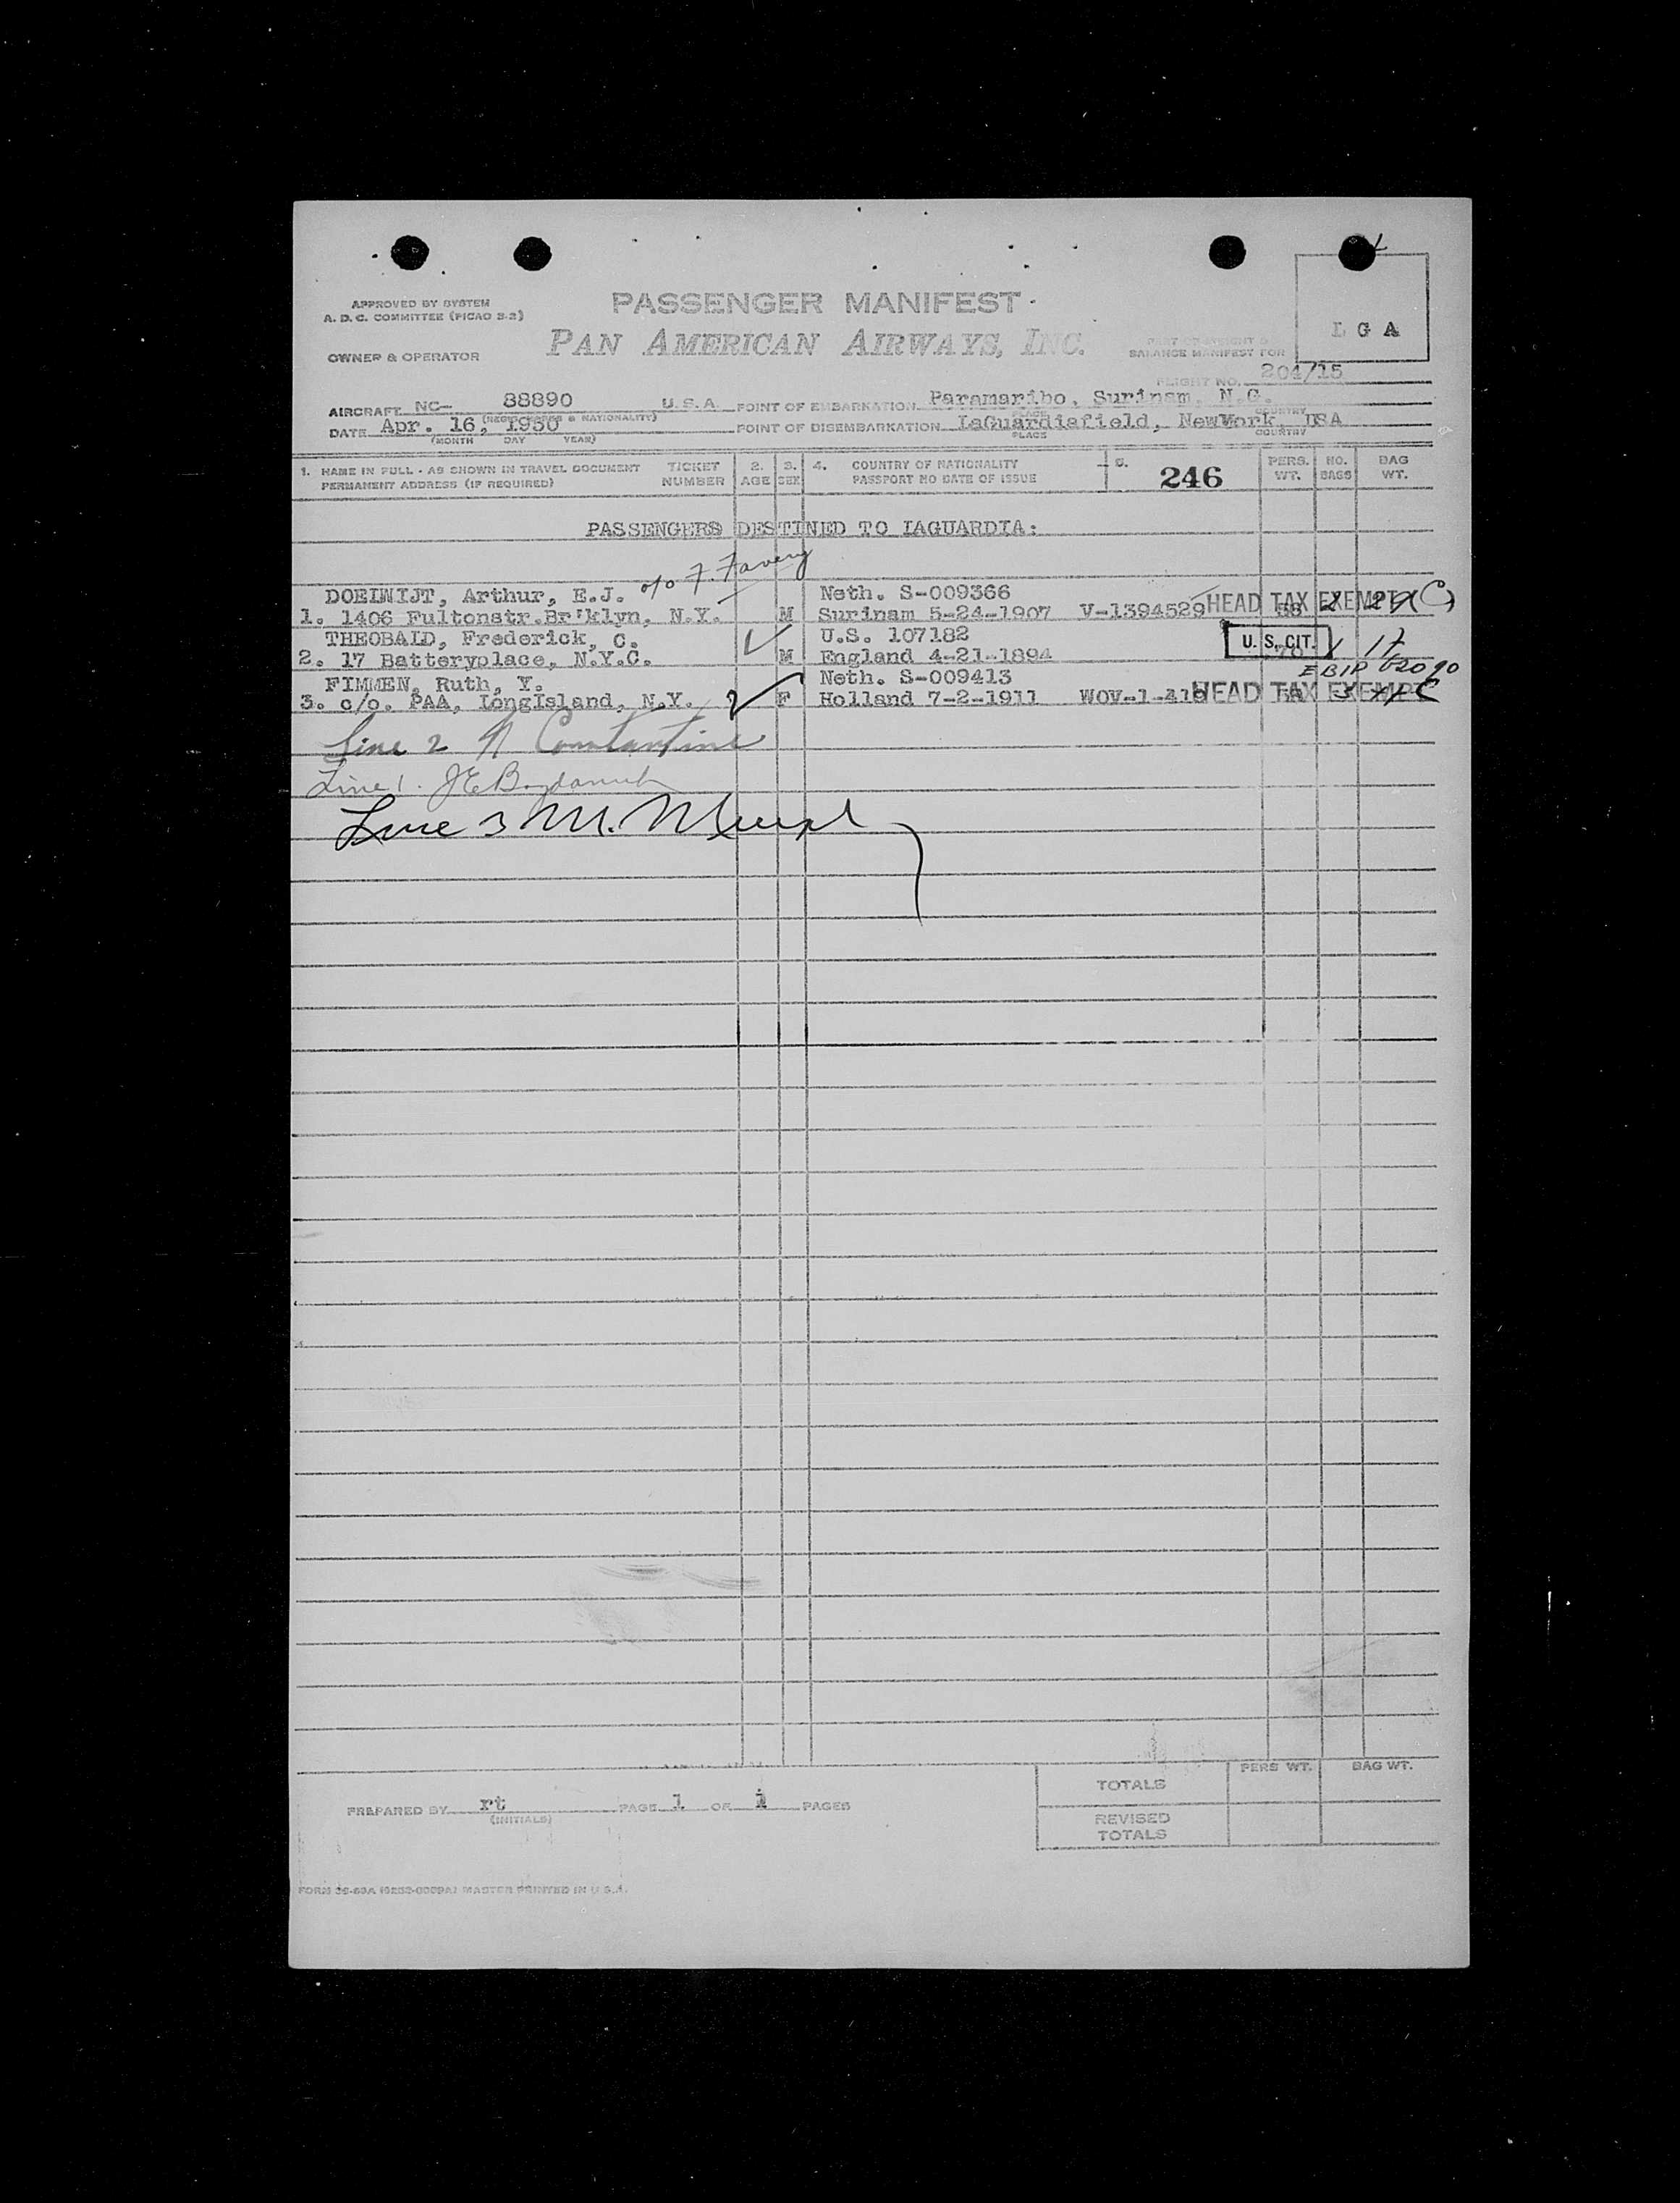 APPROVED BY SYSTEM
A. D. C. COMMITTEE (PICAO S-2)
PASSENGER MANIFEST
PAN AMERICAN AIRWAYS, INC.
OWNER & OPERATOR
L G A
PART OF WEIGHT &
BALANCE MANIFEST FOR
FLIGHT NO. 204/15
AIRCRAFT NC- 88890 U.S.A. POINT OF EMBARKATION Paramaribo, Surinam, N.G.
(REGT. MARKS & NATIONALITY) PLACE COUNTRY
DATE Apr. 16, 1950 POINT OF DISEMBARKATION LaGuardiafield, NewYork, USA
(MONTH DAY YEAR) PLACE COUNTRY
1. NAME IN FULL - AS SHOWN IN TRAVEL DOCUMENT TICKET 2. 3. 4. COUNTRY OF NATIONALITY 5. 246 PERS. NO. BAG
PERMANENT ADDRESS (IF REQUIRED) NUMBER AGE SEX PASSPORT NO DATE OF ISSUE WT. BAGS WT.
PASSENGERS DESTINED TO LAGUARDIA:
c/o F. Favery
DOELWIJT, Arthur, E.J. Neth. S-009366
1. 1406 Fultonstr.Br'klyn, N.Y. M Surinam 5-24-1907 V-1394529 HEAD TAX EXEMPT
THEOBALD, Frederick, C. U.S. 107182
2. 17 Batteryplace, N.Y.C. M England 4-21-1894 U. S. CIT. 1 17
FIMMEN, Ruth, Y. Neth. S-009413
3. c/o. PAA, LongIsland, N.Y. F Holland 7-2-1911 WOV-1-418 HEAD TAX EXEMPT
Line 2 Constantine
Line 1. J E
Line 3 M.
TOTALS PERS WT. BAG WT.
PREPARED BY rt PAGE 1 OF 1 PAGES
(INITIALS)
REVISED
TOTALS
MASTER PRINTED IN U.S.A.